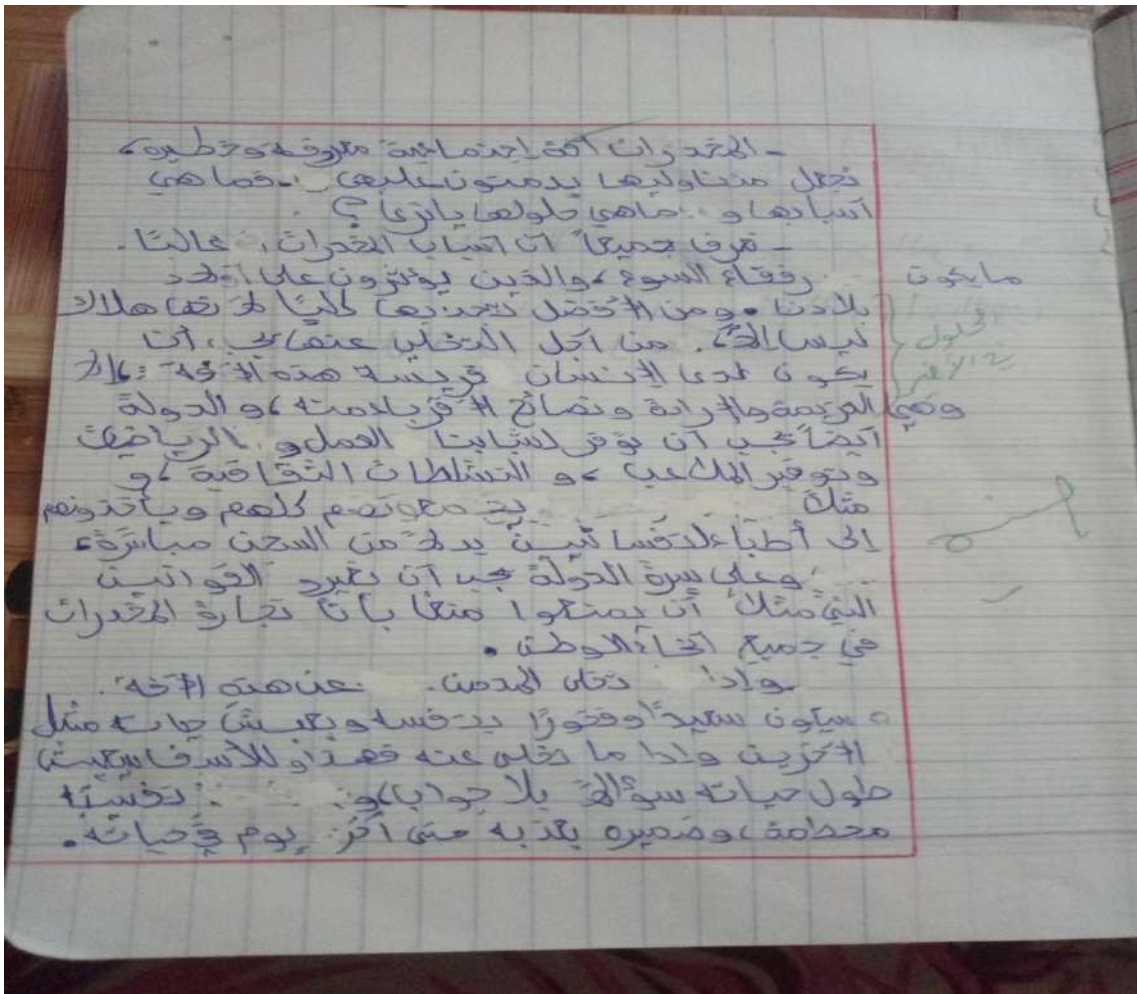 - المخدرات آفة إجتماعية معروفة وخطيرة،
تجعل متناوليها يدمنون عليها. فما هي
أسبابها و ماهي حلولها يا ترى ؟ .
- نعرف جميعاً أن أسباب المخدرات، غالبًا.
مايكون رفقاء السوء، والذين يؤثرون على
بلادنا. ومن الأفضل تجنبها كليًا لأنها هلاك
الحلول
من أجل التخلي عنها يجب، أن
يكون لدى الإنسان هذه الآفة
وهي العزيمة والإرادة ونصائح الأقرباء منه، والدولة
أيضاً يجب أن توفر لشبابنا العمل و الرياضة
وتوفير الملاعب، و النشاطات الثقافية، و
مثلا يجمعونهم كلهم ويأخذونهم
إلى أطباء نفسانيين بدلا من السجن مباشرة،
وعلى الدولة يجب أن تغير القوانين
التي مثلا أن يمنعوا منعا باتا تجارة المخدرات
في جميع أنحاء الوطن.
وإذا تخلى المدمن عن هذه الآفة.
سيكون سعيدًا وفخورًا بنفسه ويعيش حياته مثل
الآخرين وإذا ما تخلى عنه فهذا وللأسف سيعيش
طول حياته سؤالا بلا جواب، و نفسيته
محطمة، وضميره يعذبه حتى آخر يوم في حياته.